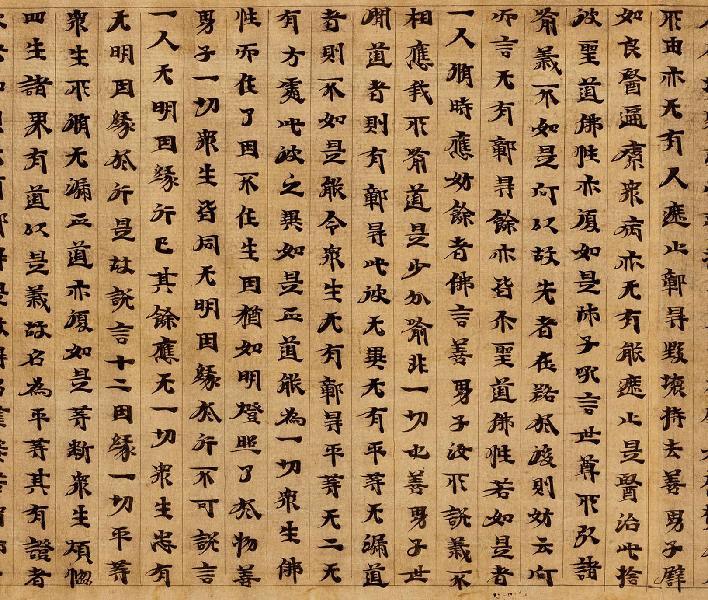 所由亦无有人遮止鄣导毀壞持去善男子譬
如良醫遍療衆病亦无有能遮止是醫治此捨
彼聖道佛性亦復如是師子吼言世尊所引諸
喻義不如是何以故先者在路於後則妨云何
而言无有鄣导餘亦皆尒聖道佛性若如是者
一人脩時應妨餘者佛言善男子汝所說義不
相應我所喻道是少分喻非一切也善男子世
間道者則有鄣导此彼无異无有平等无漏道
者則不如是能令衆生无有鄣导平等无二无
有方處此彼之異如是正道能為一切衆生佛
性而作了因不作生因猶如明燈照了於物善
男子一切衆生皆同无明因緣於行不可說言
一人无明因緣行已其餘應无一切衆生悉有
无明因緣於行是故說言十二因緣一切平等
衆生所脩无漏正道亦復如是等斷衆生煩惱
四生諸界有道以是義故名為平等其有證者